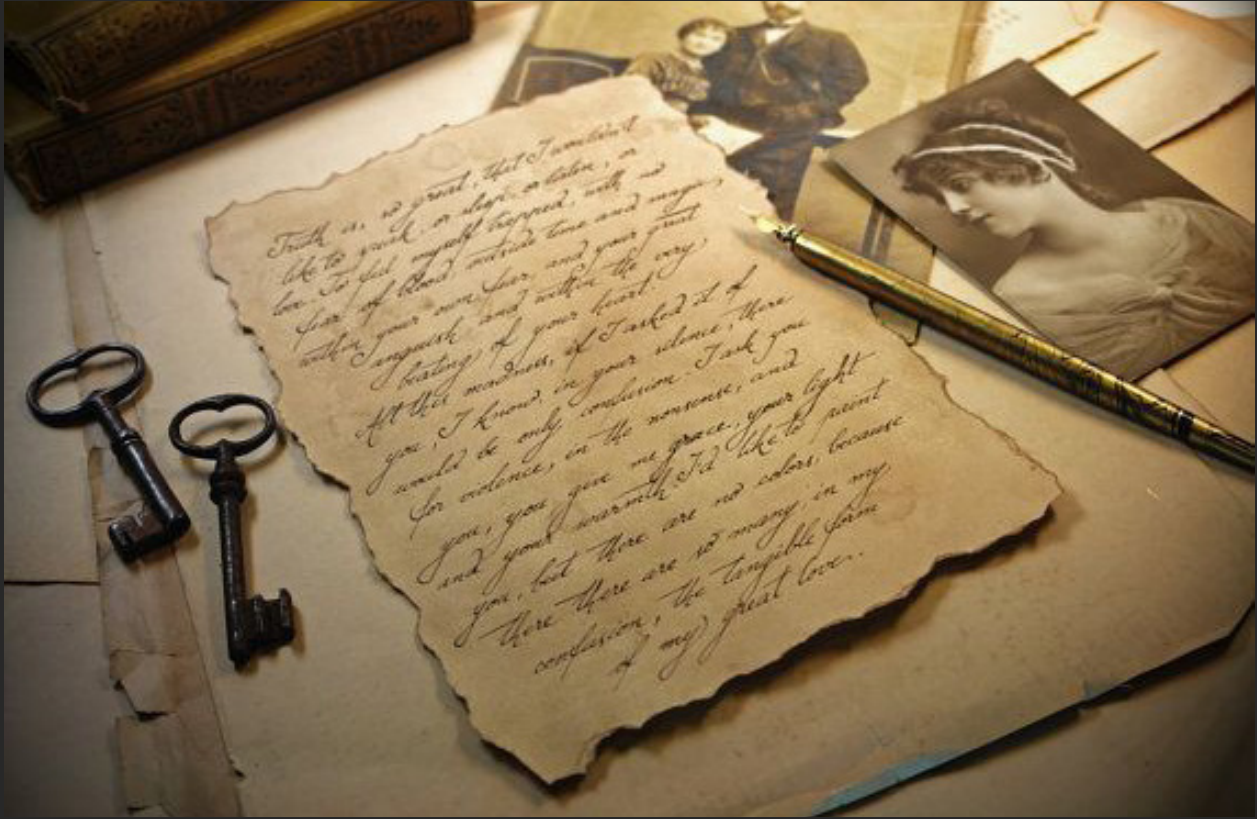 Truth is, so great, that I wouldn't
like to speak, or sleep, or listen, or
love. To feel myself trapped, with no
fear of blood outside time and magic,
within your own fear, and your great
anguish and within the very
beating of your heart
All this madness, if I asked it of
you, I know, in your silence, there
would be only confusion I ask you
for violence, in the nonsense, and
you, you give me grace, your light
and your warmth I'd like to paint
you, but there are no colors, because
there there are so many, in my
confusion, the tangible form
of my great love.